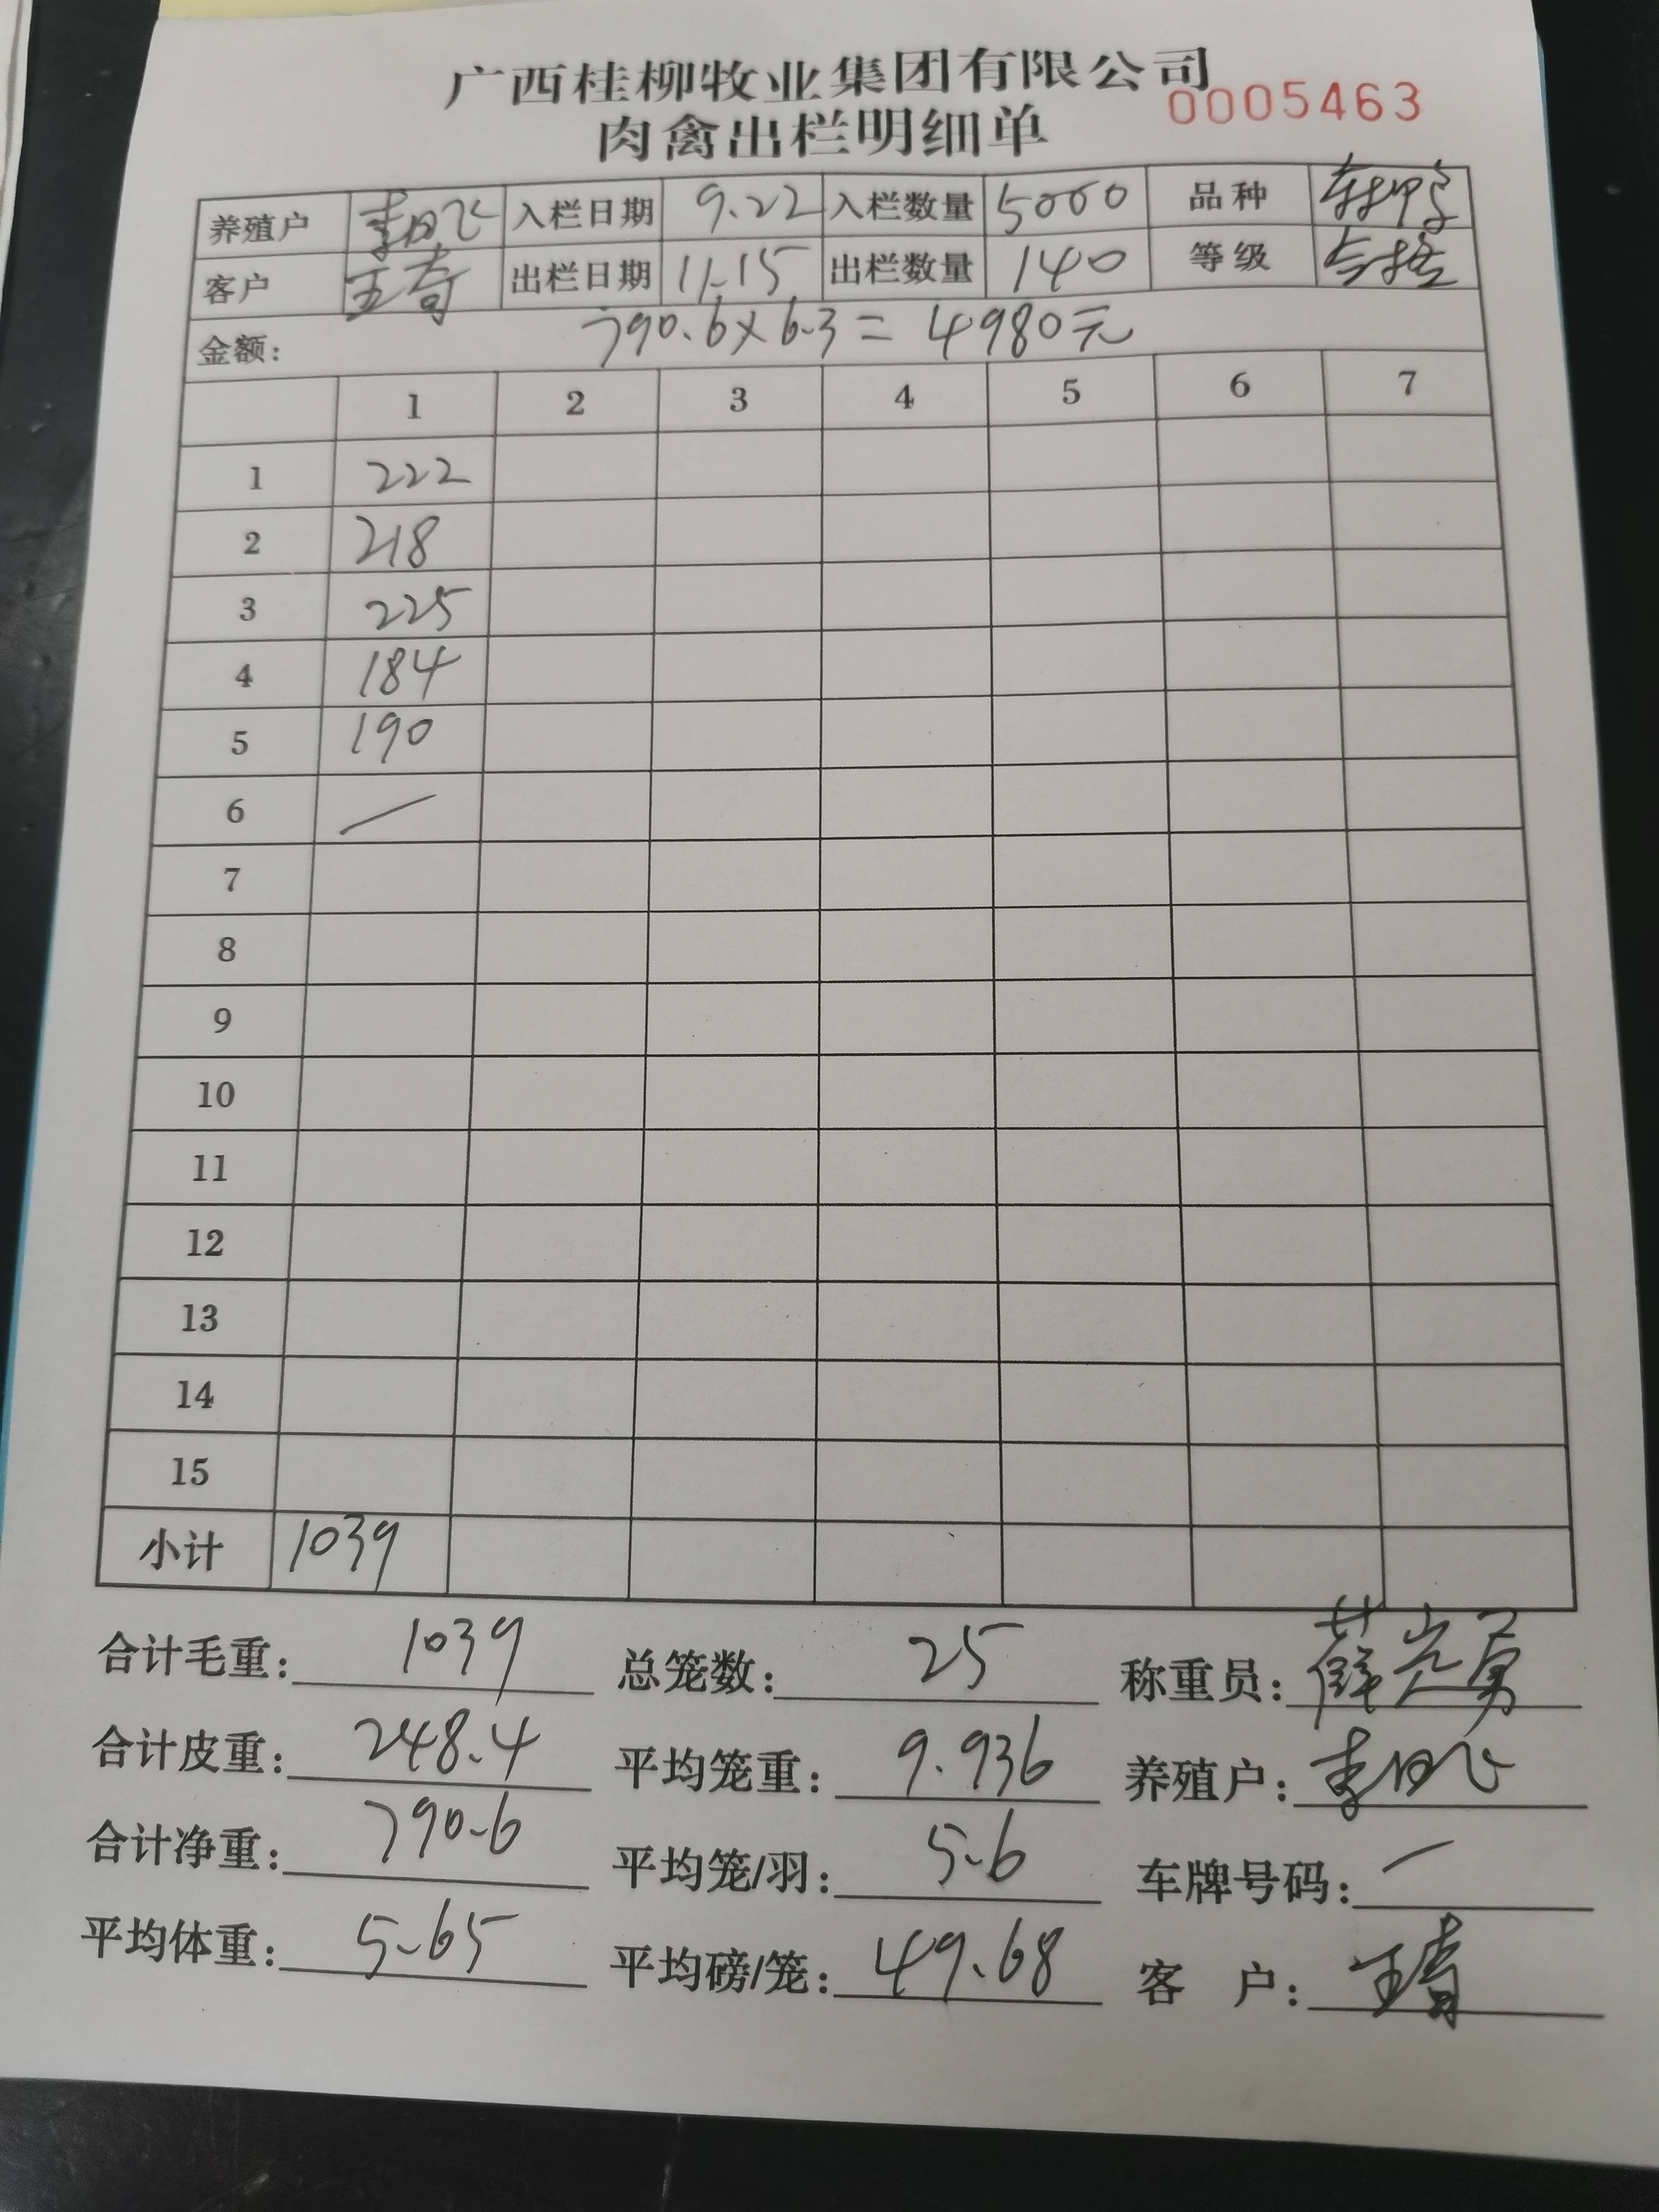 广西桂柳牧业集团有限公司
0005463
肉禽出栏明细单
养殖户 入栏日期 9.22 入栏数量 5000 品种
客户 王奇 出栏日期 11.15 出栏数量 140 等级
金额: 790.6×6.3=4980元
1 2 3 4 5 6 7
1 222
2 218
3 225
4 184
5 190
6 —
7
8
9
10
11
12
13
14
15
小计 1039
合计毛重: 1039 总笼数: 25 称重员: 薛光勇
合计皮重: 248.4 平均笼重: 9.936 养殖户:
合计净重: 790.6 平均笼/羽: 5.6 车牌号码: —
平均体重: 5.65 平均磅/笼: 49.68 客 户: 王奇